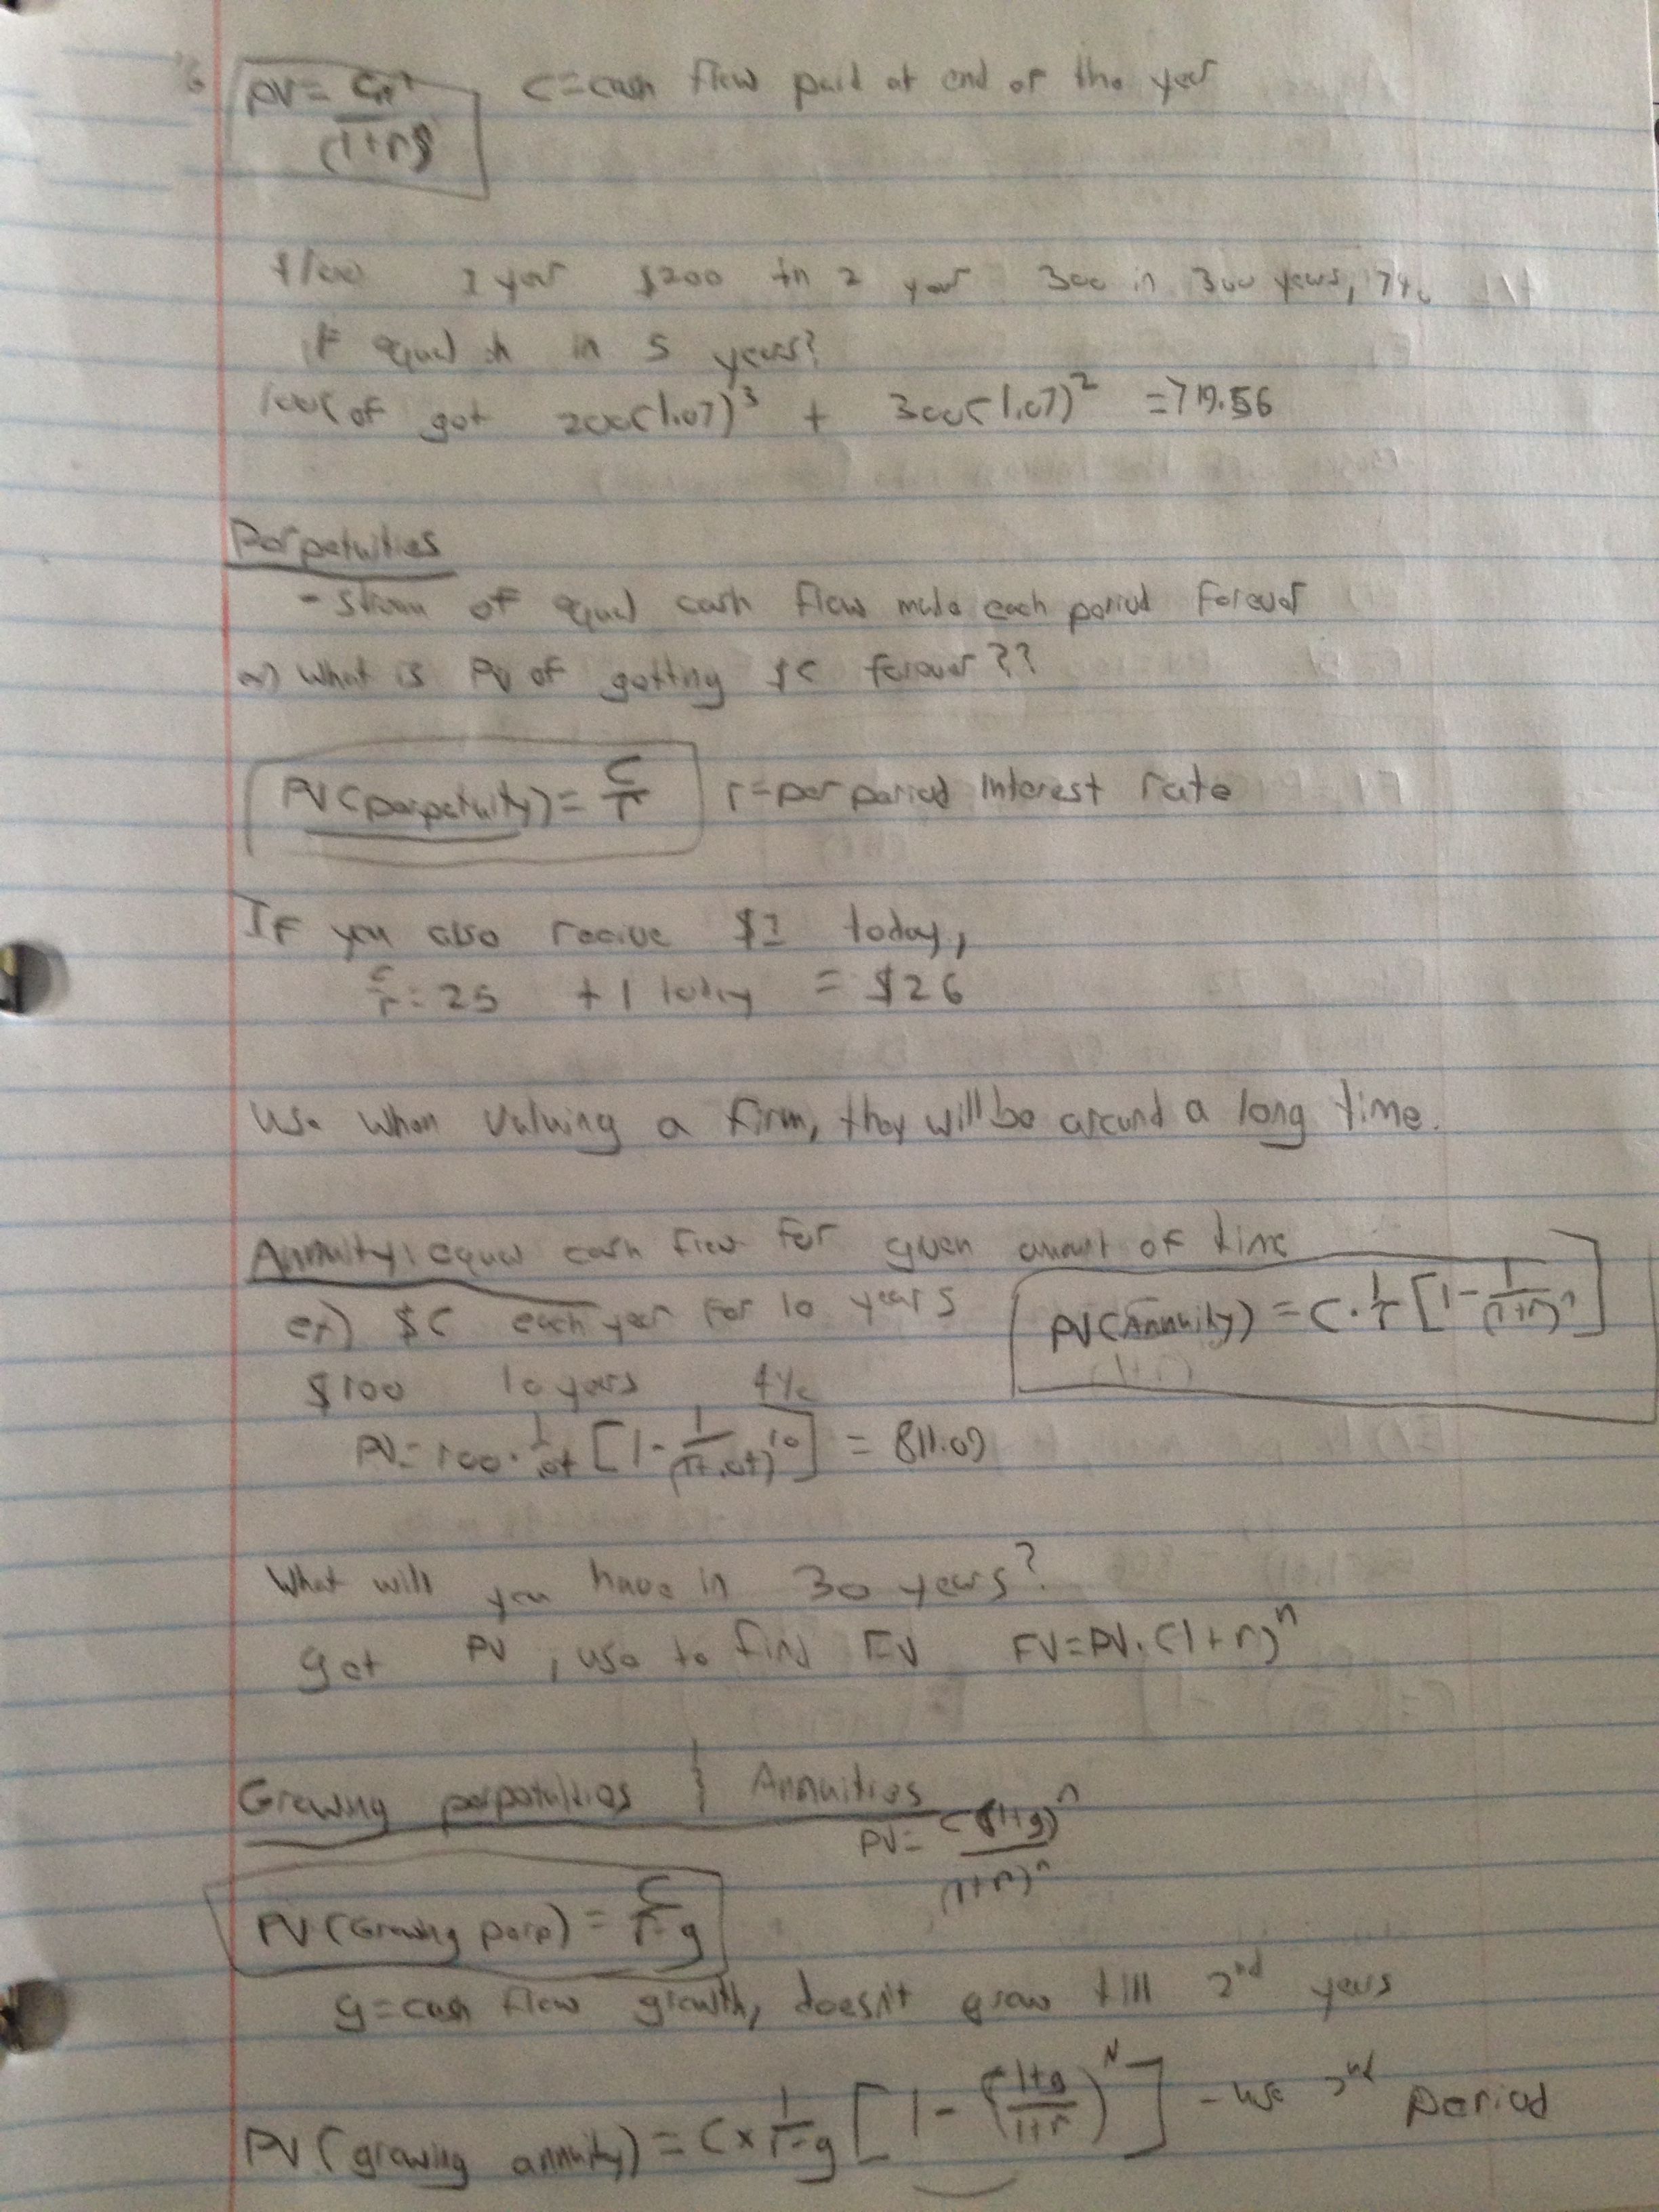 PV = C / (1+r) C = cash flow paid at end of the year
$100 1 year $200 in 2 year 300 in 300 years, 7%
if equal in 5 years?
100( of got 200(1.07)^3 + 300(1.07)^2 = 719.56
Perpetuities
- stream of equal cash flow made each period forever
What is PV of getting $C forever??
PV(perpetuity) = C/r r = per period interest rate
If you also recive $1 today,
C/r = 25 + 1 today = $26
Use when valuing a firm, they will be around a long time.
Annuity: equal cash flow for given amount of time
ex) $C each year for 10 years PV(Annuity) = C · 1/r [1 - 1/(1+r)^n]
$100 10 years 4%
PV = 100 · 1/.04 [1 - 1/(1+.04)^10] = 811.09
What will you have in 30 years?
get PV, use to find FV FV = PV · (1+r)^n
Growing perpetuities & Annuities
PV = C(1+g)^n / (1+r)^n
PV(Growing perp) = C/r-g
g = cash flow growth, doesn't grow till 2nd years
PV(growing annuity) = C x 1/r-g [1 - (1+g/1+r)^N] - use 2nd period